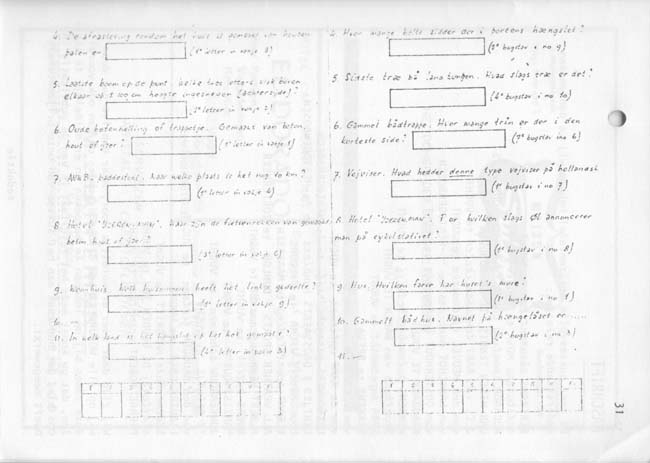 4. De afrastering rondom het huis is gemaakt van houten
palen en (1e letter in vakje 8)
5. Laatste boom op de punt. welke twee letters
elkaar op ± 100 cm hoogte ingesneden (achterzijde)?
(1e letter in vakje 2)
6. Oude botenhelling of trapeetje. Gemaakt van beton,
hout of ijzer? (1e letter in vakje 5)
7. ANWB-paddestoel. Naar welke plaats is het nog 70 km?
(1e letter in vakje 4)
8. Hotel "IJZEREN MAN". Waar zijn de fietsenrekken van gemaakt
beton hout of ijzer? (3e letter in vakje 6)
9. Woonhuis. heeft het linker gedeelte?
(1e letter in vakje 9)
10. —
11. In welk land is het hangslot op het hek gemaakt?
(4e letter in vakje 3)
4. Hvor mange bolte sidder der i portens hængslet?
(3e bogstav i no 9)
5. Sidste træ på landtungen. Hvad slags træ er det?
(4e bogstav i no 10)
6. Gammel bådtrappe. Hvor mange trin er der i den
korteste side? (7e bogstav ino 6)
7. Vejviser. Hvad hedder denne type vejviser på hollandsk
(1e bogstav i no 7)
8. Hotel "IJZEREN MAN". For hvilken slags Øl annoncerer
man på cykelstativet?
(1e bogstav i no 8)
9. Hus. Hvilken farve har huset's mure?
(1e bogstav i no 1)
10. Gammelt bådhus. Navnet på hængelåset er .....
(2e bogstav i no 3)
11. —
1 2 3 4 5 6 7 8 9 10
1 2 3 4 5 6 7 8 9 10
31